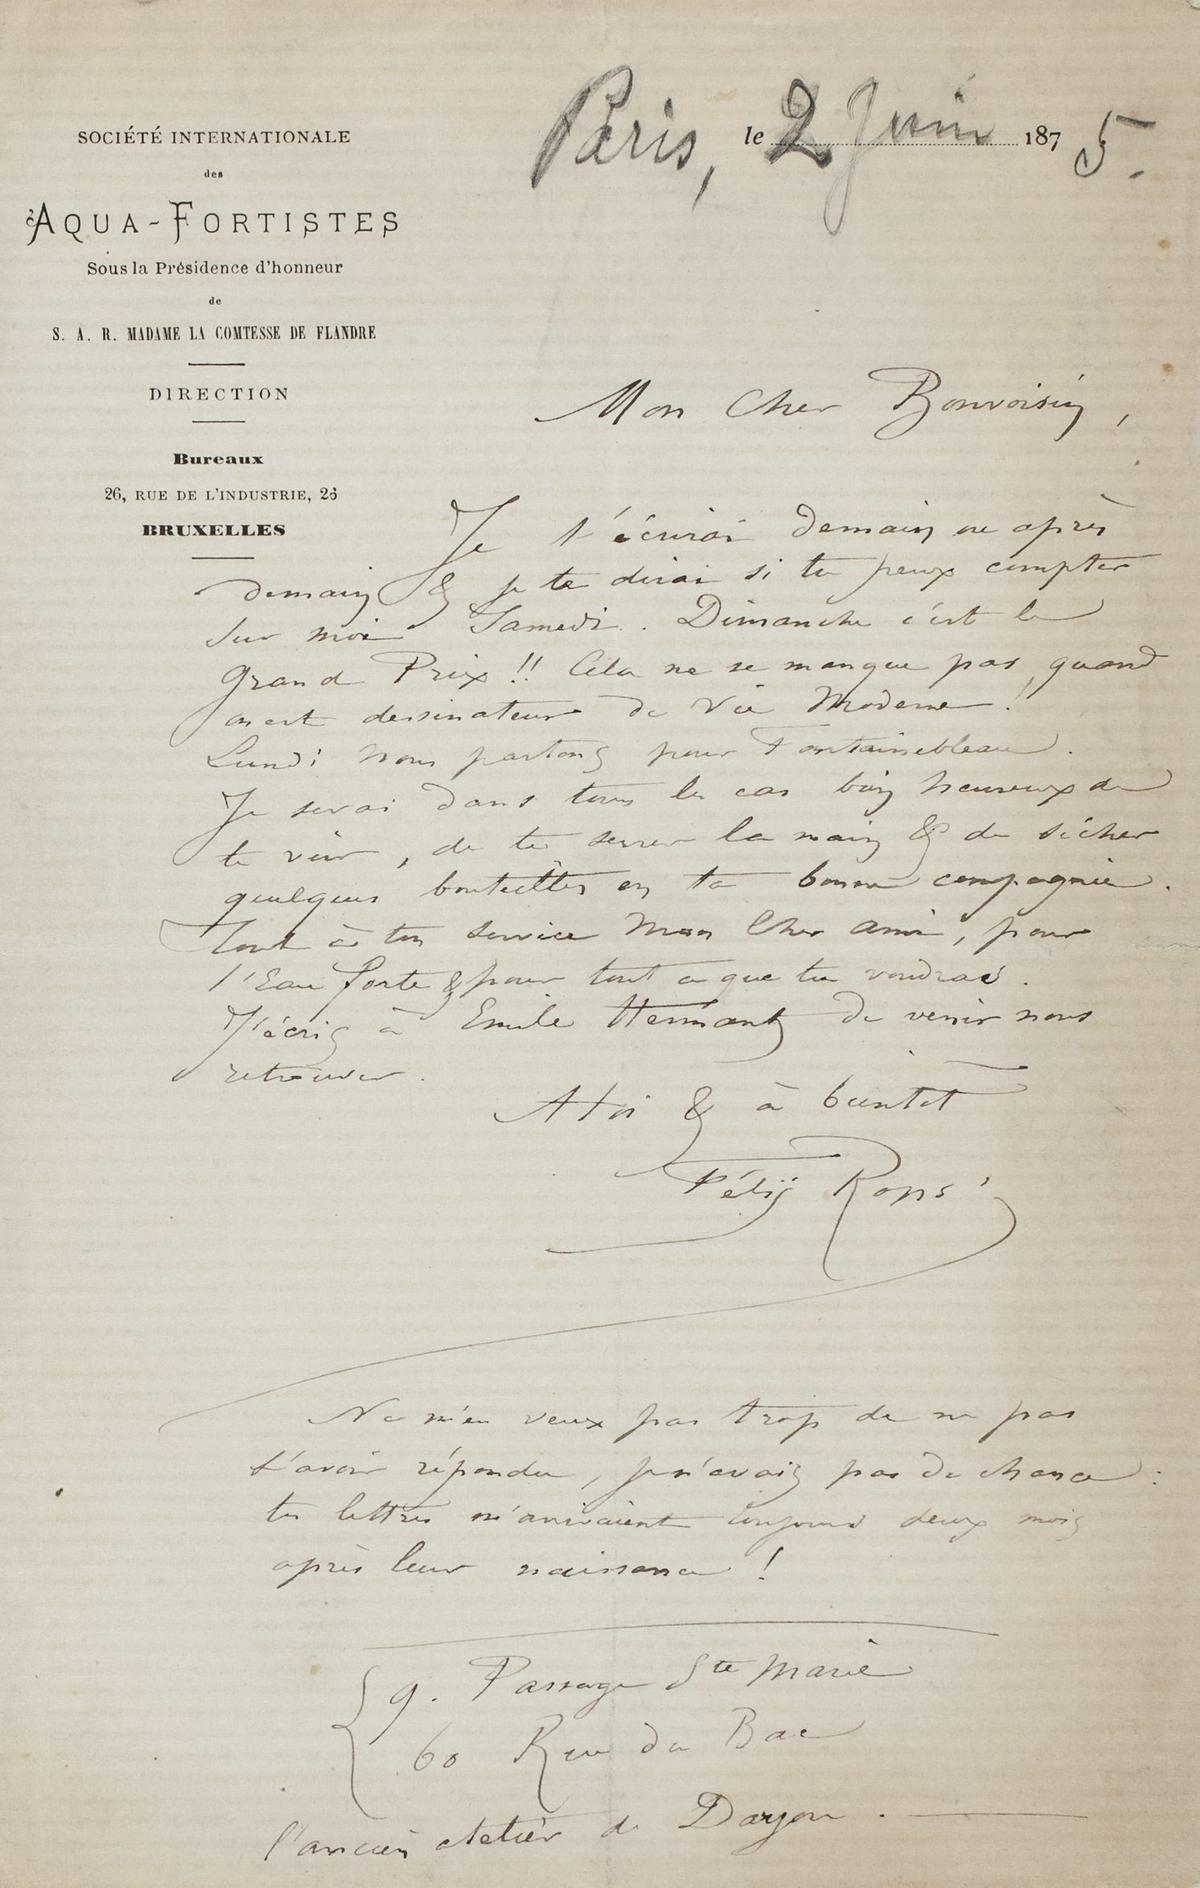 SOCIÉTÉ INTERNATIONALE
des
AQUA-FORTISTES
Sous la Présidence d'honneur
de
S. A. R. MADAME LA COMTESSE DE FLANDRE
DIRECTION
Bureaux
26, RUE DE L'INDUSTRIE, 26
BRUXELLES
Paris, le 2 Juin 1875.
Mon Cher Bonvoisin,
Je t'écrirai demain ou après
demain & je te dirai si tu peux compter
sur moi Samedi. Dimanche c'est le
Grand Prix!! Cela ne se manque pas, quand
on est dessinateur de Vie Moderne!
Lundi nous partons pour Fontainebleau.
Je serai dans tous les cas bien heureux de
te voir, de te serrer la main & de sécher
quelques bouteilles en ta bonne compagnie.
Tout à ton service Mon Cher ami, pour
l'Eau forte & pour tout ce que tu voudras.
J'écris à Emile Hermant de venir nous
retrouver.
A toi & à bientot
Félix Rops
Ne m'en veux pas trop de ne pas
t'avoir répondu, je n'avais pas de chance:
tes lettres m'arrivaient toujours deux mois
après leur naissance!
9. Passage Ste Marie
60 Rue du Bac
l'ancien atelier de Darjou.